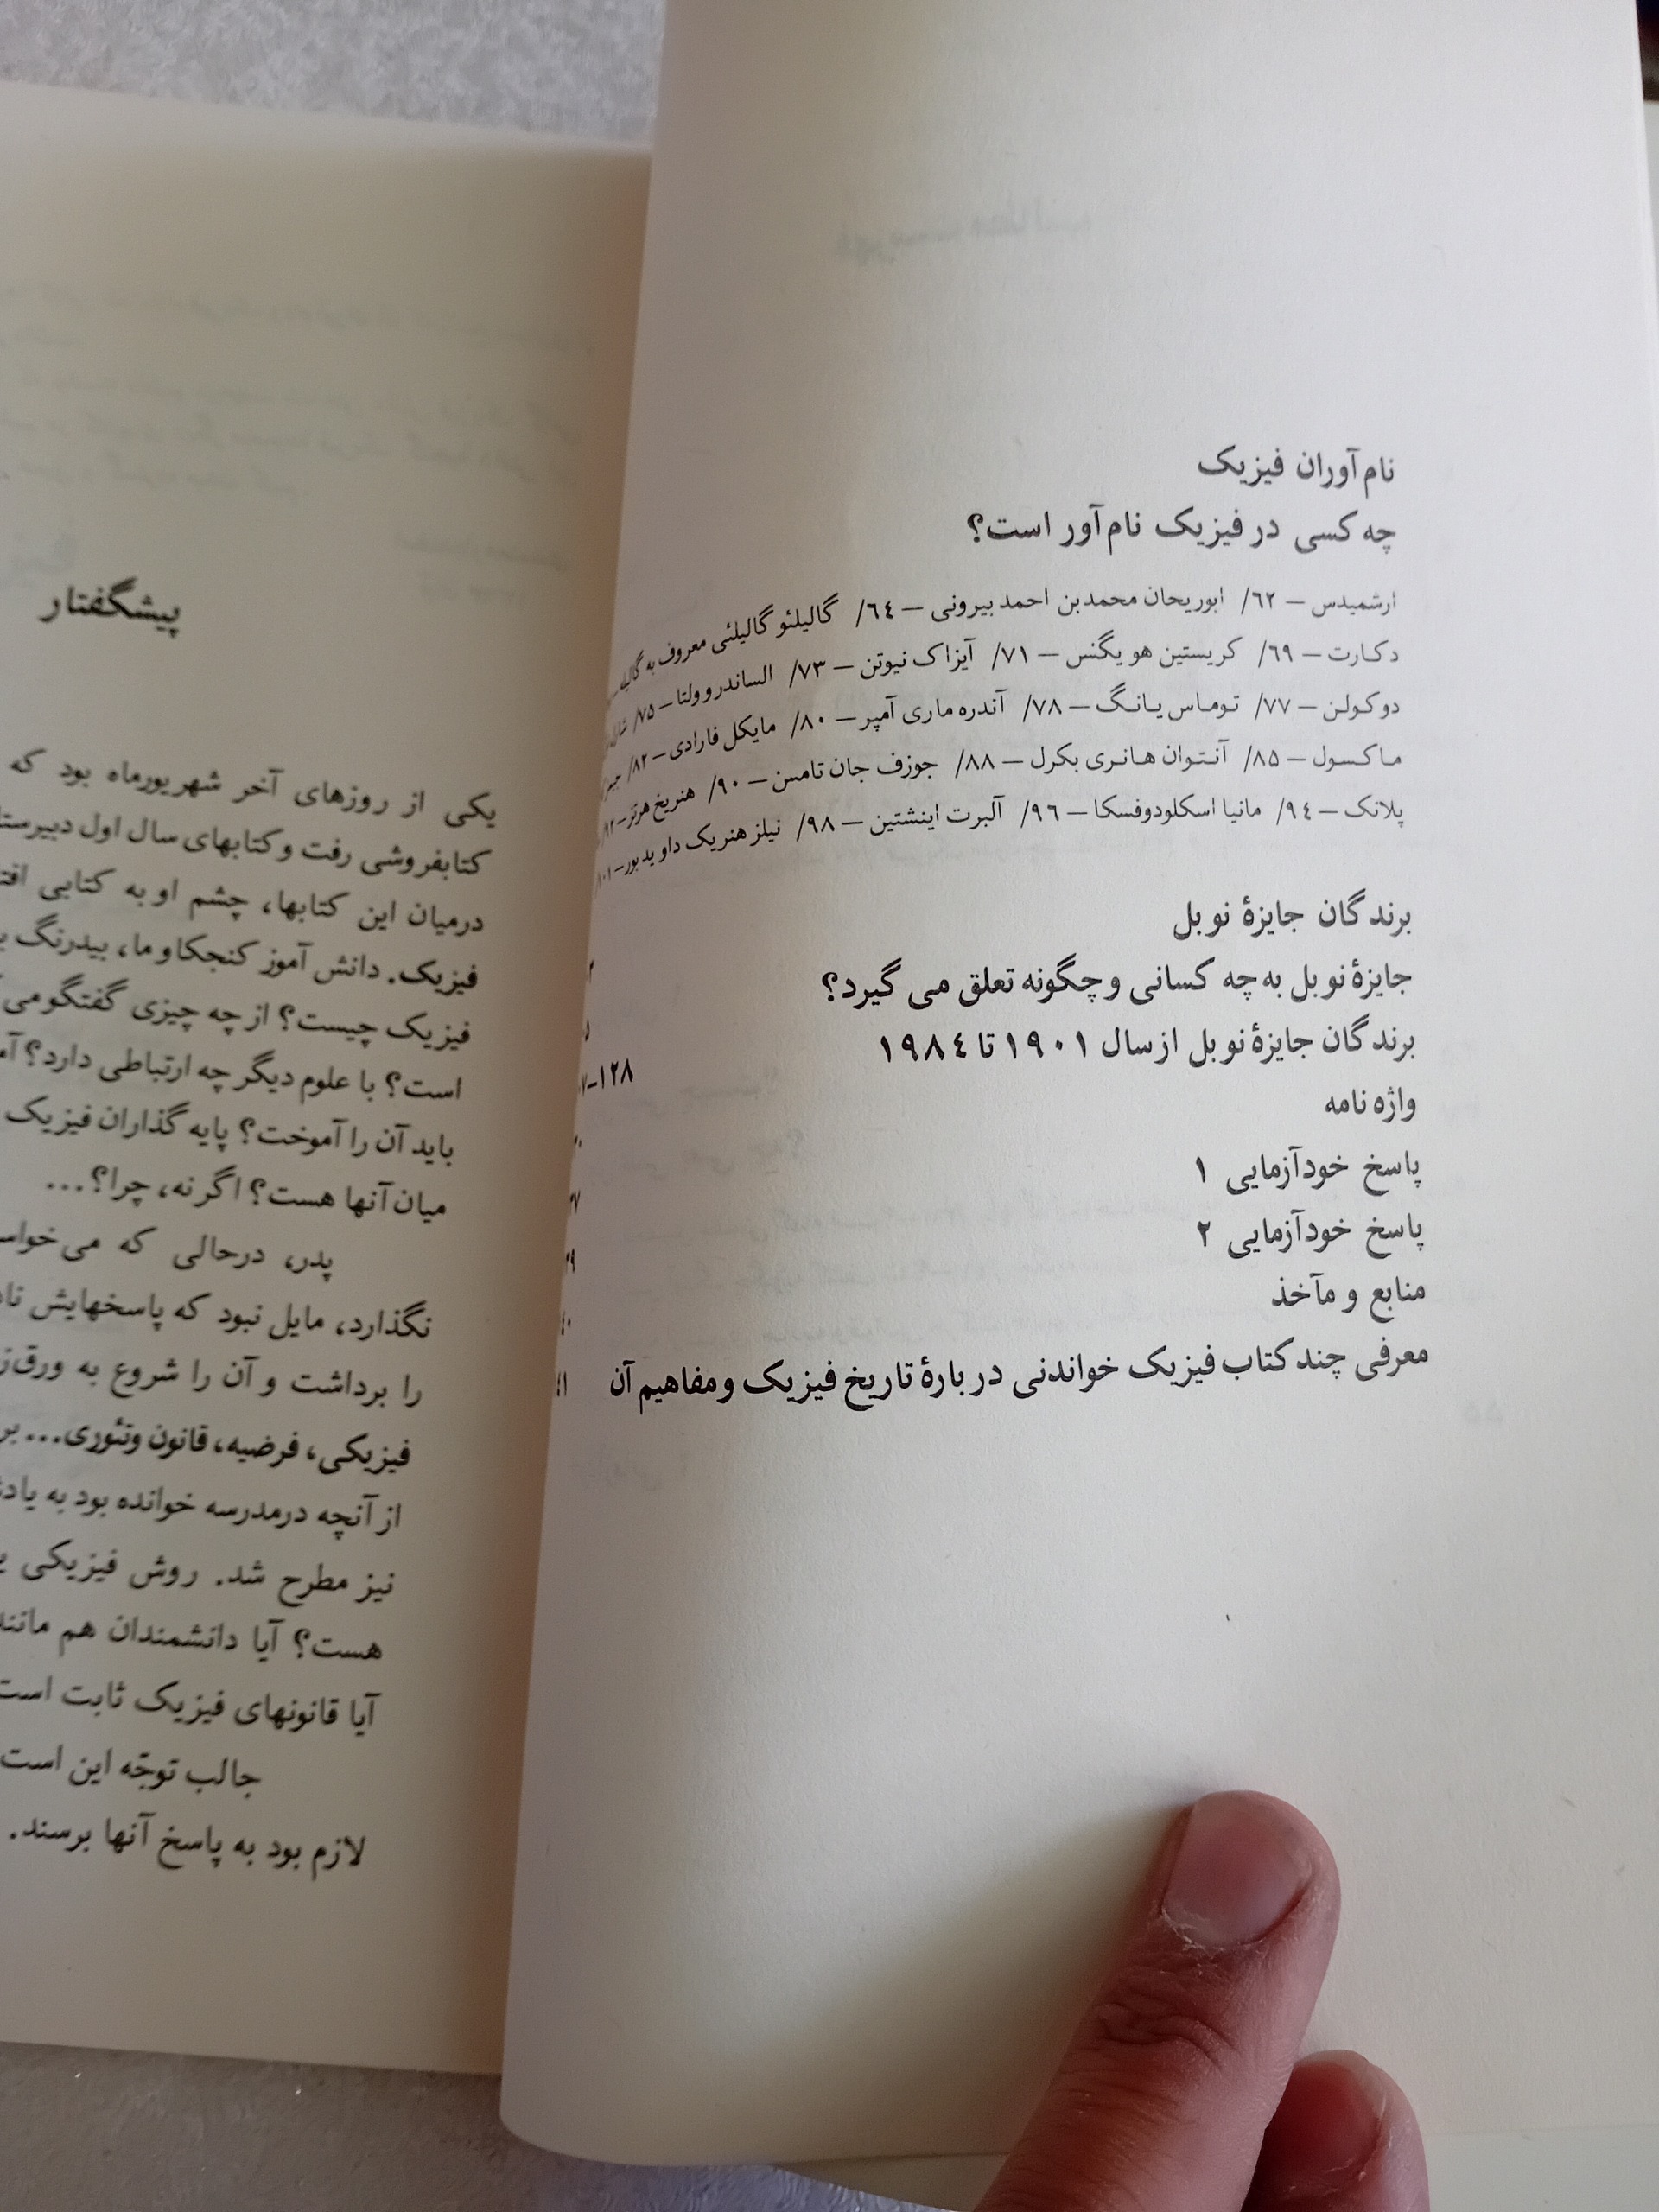 نام‌آوران فیزیک
چه کسی در فیزیک نام‌آور است؟
ارشمیدس — ۶۲/ ابوریحان محمدبن احمد بیرونی — ۶۴/ گالیلئو گالیلئی معروف به
دکارت — ۶۹/ کریستین هویگنس — ۷۱/ آیزاک نیوتن — ۷۳/ الساندرو ولتا — ۷۵/
دوکولن — ۷۷/ توماس یانگ — ۷۸/ آندره ماری آمپر — ۸۰/ مایکل فارادی — ۸۲/
ماکسول — ۸۵/ آنتوان هانری بکرل — ۸۸/ جوزف جان تامسن — ۹۰/ هنریخ هرتز — ۹۲/
پلانک — ۹۴/ مانیا اسکلودوفسکا — ۹۶/ آلبرت اینشتین — ۹۸/ نیلز هنریک داوید بور — ۱۰۱
برندگان جایزهٔ نوبل
جایزهٔ نوبل به چه کسانی و چگونه تعلق می گیرد؟
برندگان جایزهٔ نوبل از سال ۱۹۰۱ تا ۱۹۸۴ ۷-۱۲۸
واژه نامه
پاسخ خودآزمایی ۱
پاسخ خودآزمایی ۲
منابع و مآخذ
معرفی چند کتاب فیزیک خواندنی در بارهٔ تاریخ فیزیک و مفاهیم آن
پیشگفتار
یکی از روزهای آخر شهریورماه بود که
کتابفروشی رفت و کتابهای سال اول
درمیان این کتابها، چشم او به کتابی
فیزیک. دانش آموز کنجکاو ما، بیدرنگ
فیزیک چیست؟ از چه چیزی گفتگو می
است؟ با علوم دیگر چه ارتباطی دارد؟
باید آن را آموخت؟ پایه گذاران فیزیک
میان آنها هست؟ اگر نه، چرا؟...
پدر، درحالی که
نگذارد، مایل نبود که پاسخهایش
را برداشت و آن را شروع به
فیزیکی، فرضیه، قانون وتئوری...
از آنچه درمدرسه خوانده بود به
نیز مطرح شد. روش فیزیکی
هست؟ آیا دانشمندان هم
آیا قانونهای فیزیک ثابت
جالب توجّه این است
لازم بود به پاسخ آنها برسند.